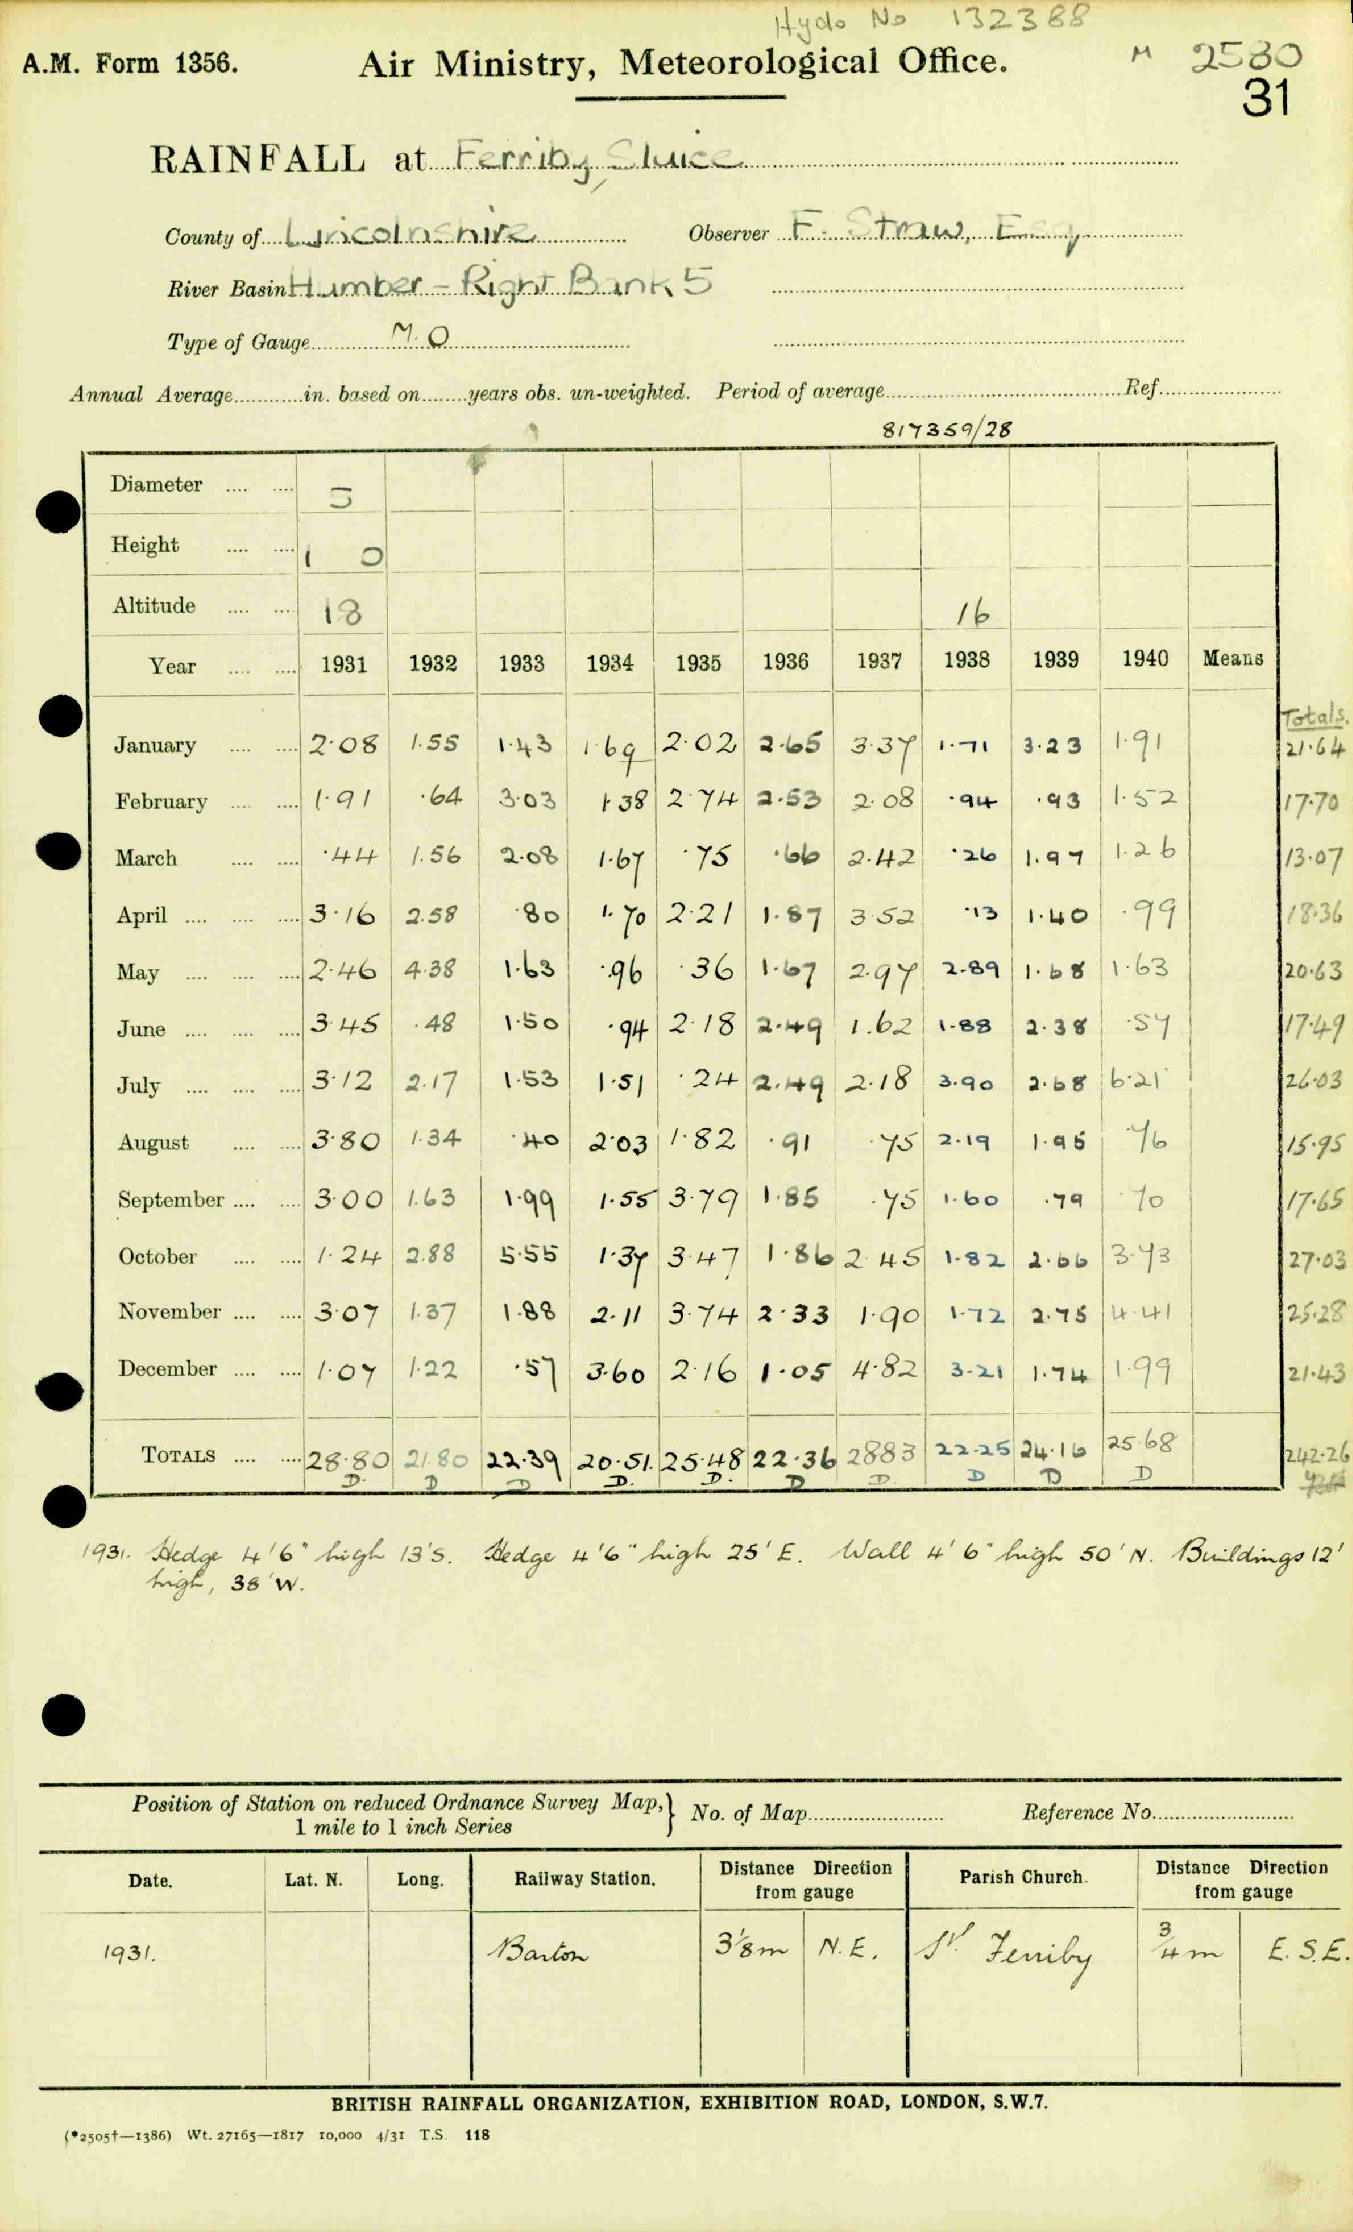 Hydo No 132388
A.M. Form 1356. Air Ministry, Meteorological Office. M 2580
31
RAINFALL at Ferriby Sluice
County of Lincolnshire Observer F. Straw, Esq
River Basin Humber - Right Bank 5
Type of Gauge M.O
Annual Average in. based on years obs. un-weighted. Period of average Ref.
817359/28
Diameter 5
Height 1 0
Altitude 18 16
Year 1931 1932 1933 1934 1935 1936 1937 1938 1939 1940 Means
Totals.
January 2.08 1.55 1.43 1.69 2.02 2.65 3.37 1.71 3.23 1.91 21.64
February 1.91 .64 3.03 1.38 2.74 2.53 2.08 .94 .93 1.52 17.70
March .44 1.56 2.08 1.67 .75 .66 2.42 .26 1.97 1.26 13.07
April 3.16 2.58 .80 1.70 2.21 1.87 3.52 .13 1.40 .99 18.36
May 2.46 4.38 1.63 .96 .36 1.67 2.97 2.89 1.68 1.63 20.63
June 3.45 .48 1.50 .94 2.18 2.49 1.62 1.88 2.38 .57 17.49
July 3.12 2.17 1.53 1.51 .24 2.49 2.18 3.90 2.68 6.21 26.03
August 3.80 1.34 .40 2.03 1.82 .91 .75 2.19 1.95 .76 15.95
September 3.00 1.63 1.99 1.55 3.79 1.85 .75 1.60 .79 .70 17.65
October 1.24 2.88 5.55 1.37 3.47 1.86 2.45 1.82 2.66 3.73 27.03
November 3.07 1.37 1.88 2.11 3.74 2.33 1.90 1.72 2.75 4.41 25.28
December 1.07 1.22 .57 3.60 2.16 1.05 4.82 3.21 1.74 1.99 21.43
TOTALS 28.80 21.80 22.39 20.51 25.48 22.36 28.83 22.25 24.16 25.68 242.26
D. D D D. D. D D. D D D
1931. Hedge 4'6" high 13'S. Hedge 4'6" high 25' E. Wall 4'6" high 50' N. Buildings 12'
high, 38' W.
Position of Station on reduced Ordnance Survey Map, } No. of Map Reference No.
1 mile to 1 inch Series
Date. Lat. N. Long. Railway Station. Distance Direction from gauge Parish Church. Distance Direction from gauge
1931. Barton 3 1/8 m N.E. Sth Ferriby 3/4 m E.S.E.
BRITISH RAINFALL ORGANIZATION, EXHIBITION ROAD, LONDON, S.W.7.
(*2505†—1386) Wt. 27165—1817 10,000 4/31 T.S. 118